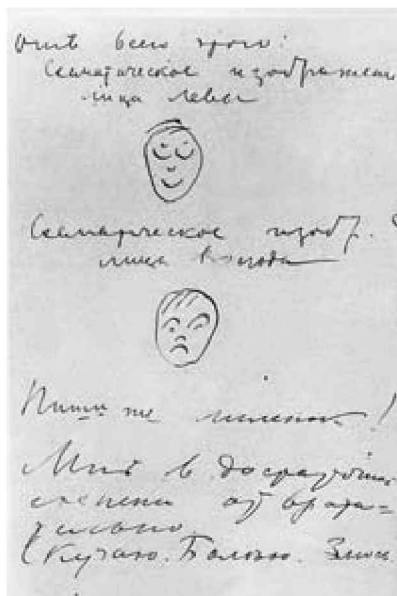 всего этого:
Схематическое изображен
лица Левы
Схематическое изобр.
лица
Пиши же !
Мнѣ в достаточной
степени отврати=
тельно
Скучаю. Злюсь